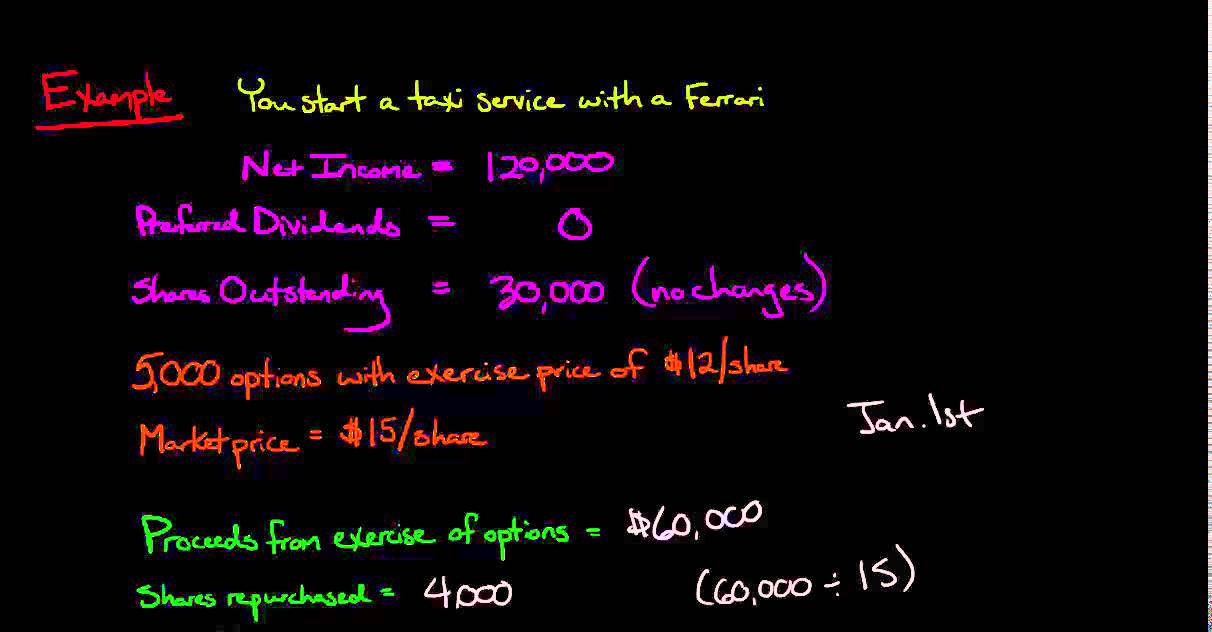 Example You start a taxi service with a Ferrari
Net Income = 120,000
Preferred Dividends = 0
Shares Outstanding = 30,000 (no changes)
5,000 options with exercise price of $12/share
Jan. 1st
Market price = $15/share
Proceeds from exercise of options = $60,000
Shares repurchased = 4,000 (60,000 ÷ 15)